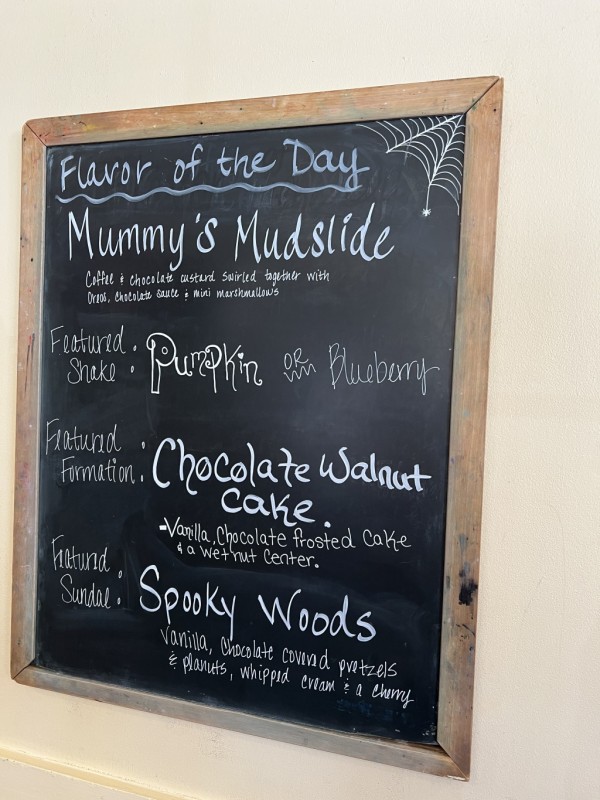 Flavor of the Day
Mummy's Mudslide
Coffee & chocolate custard swirled together with
Oreos, chocolate sauce & mini marshmallows
Featured
Shake : Pumpkin OR Blueberry
Featured
Formation : Chocolate Walnut
Cake.
-Vanilla, Chocolate frosted cake
& a wetnut center.
Featured
Sundae : Spooky Woods
Vanilla, Chocolate covered pretzels
& peanuts, whipped cream & a cherry